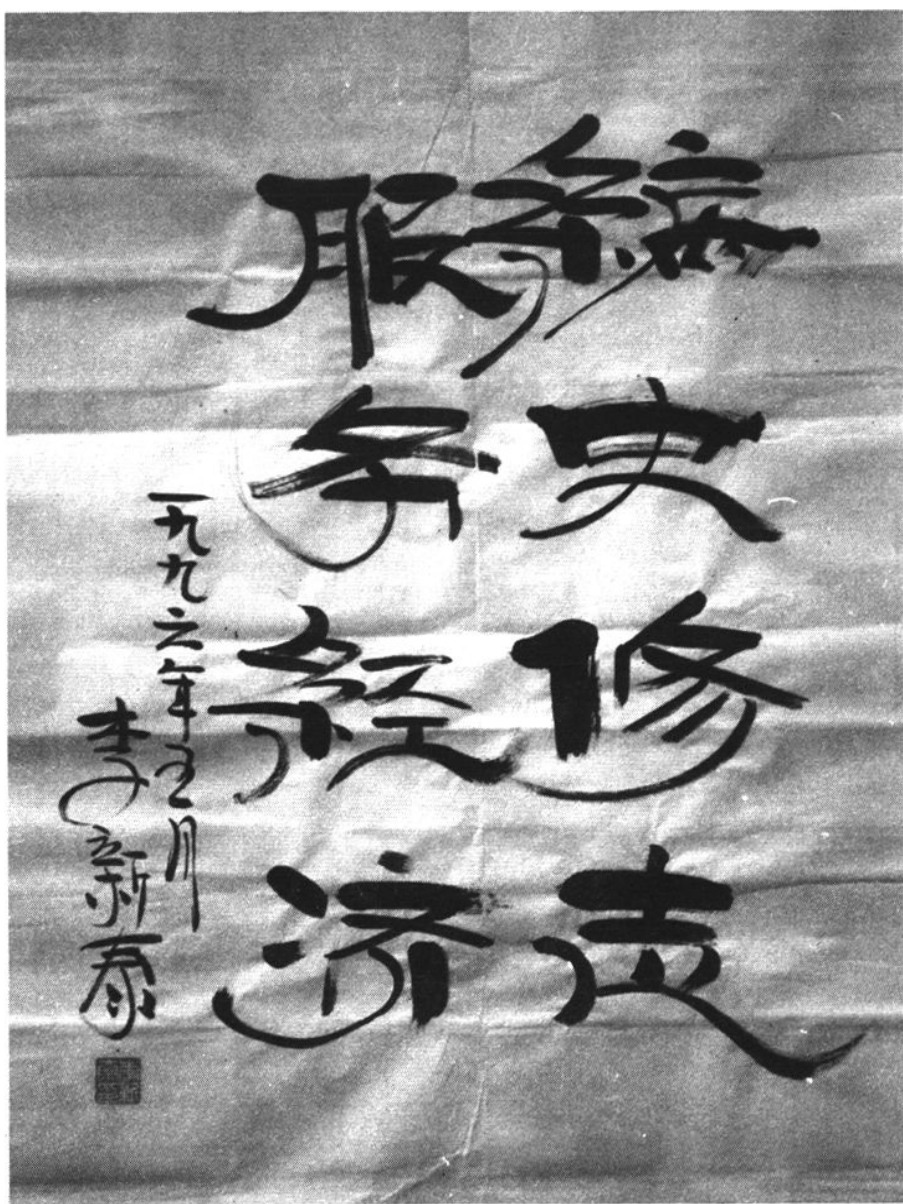 编史修志
服务经济
一九九六年五月
李新泰